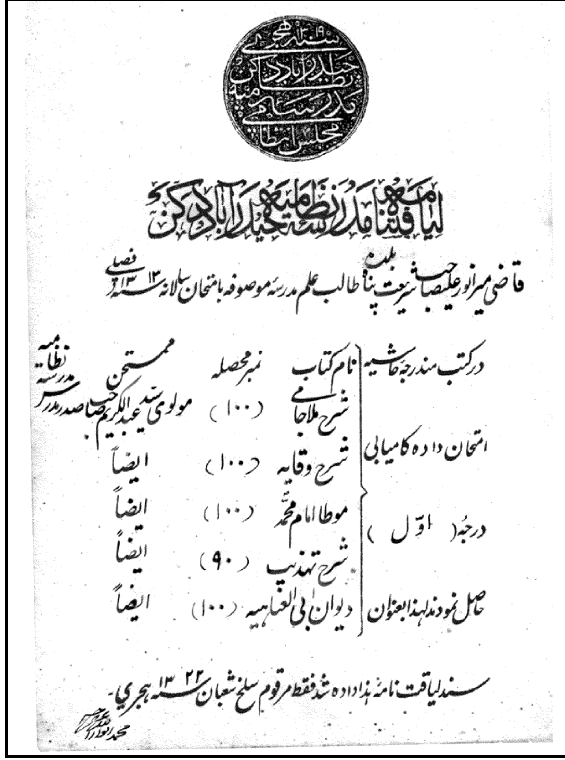 سنہ ۱۲۹ ہجری
حیدرآباد دکن
نظامیہ
مدرسہ
مجلس انتظامی
لیاقت نامہ مدرسہ نظامیہ حیدرآباد دکن
قاضی میر انور علی صاحب شریعت پناہ بلدہ طالب علم مدرسۂ موصوفہ بامتحان سالانہ ۱۳۱۲ فصلی
در کتب مندرجہ حاشیہ
امتحان دادہ کامیابی
درجۂ ( اوّل )
حاصل نمودند لہذا بعنوان
نام کتاب نمبر محصلہ ممتحن
شرح ملا جامی (۱۰۰) مولوی سید عبدالکریم صاحب صدر مدرس مدرسہ نظامیہ
شرح وقایہ (۱۰۰) ایضاً
موطا امام محمدؒ (۱۰۰) ایضاً
شرح تہذیب (۹۰) ایضاً
دیوان ابی العتاہیہ (۱۰۰) ایضاً
سند لیاقت نامۂ ہذا دادہ شد فقط مرقوم سلخ شعبان سنہ ۱۳۲۲ ہجری۔
محمد انوار اللہ